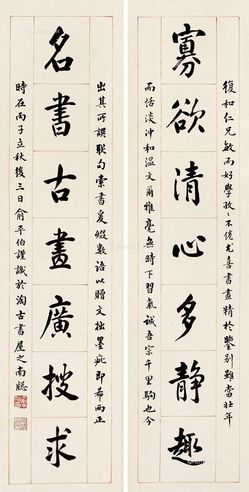 復初仁兄敏而好學孜孜不倦尤喜書畫精於鑒別雖當壯年
寡欲清心多静趣
而恬淡沖和温文爾雅毫無時下習氣誠吾宗千里駒也今
出其所譔联句索書爰綴數語以贈文拙墨疵即希兩正
名書古畫廣搜求
時在丙子立秋後三日俞平伯謹識於淘古書屋之南牕